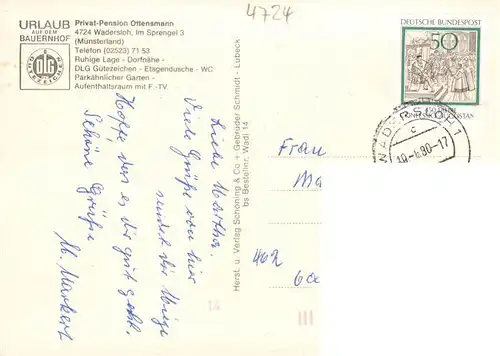 4724
URLAUB
AUF DEM
BAUERNHOF
DLG
Privat-Pension Ottensmann
4724 Wadersloh, Im Sprengel 3
(Münsterland)
Telefon (02523) 71 53
Ruhige Lage - Dorfnähe -
DLG Gütezeichen - Etagendusche - WC
Parkähnlicher Garten -
Aufenthaltsraum mit F.-TV.
DEUTSCHE BUNDESPOST
50
WADERSLOH 1
c
80-17
Liebe Martha.
Viele Grüße von hier
sendet dir
Hoffe das es dir gut geht.
Schöne Grüße
M. Markert
Herst. u. Verlag Schöning & Co + Gebrüder Schmidt - Lübeck
bs Bestellnr. Wadl 14
Frau
Ma
402